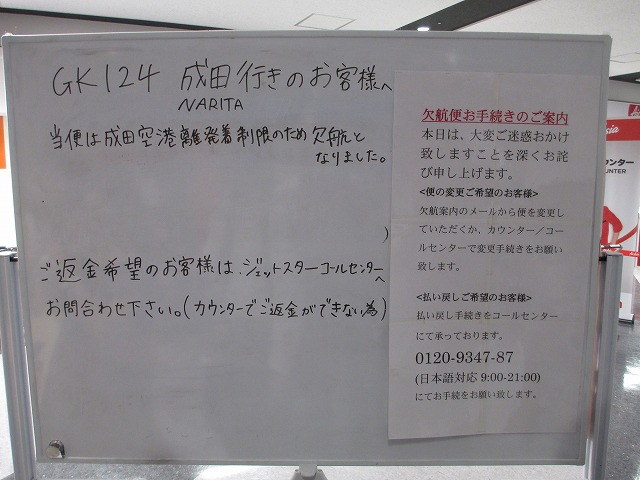 GK124 成田行きのお客様へ
NARITA
当便は成田空港離発着制限のため欠航と
なりました。
)
ご返金希望のお客様は、ジェットスターコールセンターへ
お問合わせ下さい。(カウンターでご返金ができない為)
欠航便お手続きのご案内
本日は、大変ご迷惑おかけ
致しますことを深くお詫
び申し上げます。
<便の変更ご希望のお客様>
欠航案内のメールから便を変更し
ていただくか、カウンター/コー
ルセンターで変更手続きをお願い
致します。
<払い戻しご希望のお客様>
払い戻し手続きをコールセンター
にて承っております。
0120-9347-87
(日本語対応 9:00-21:00)
にてお手続をお願い致します。
ウンター
UNTER